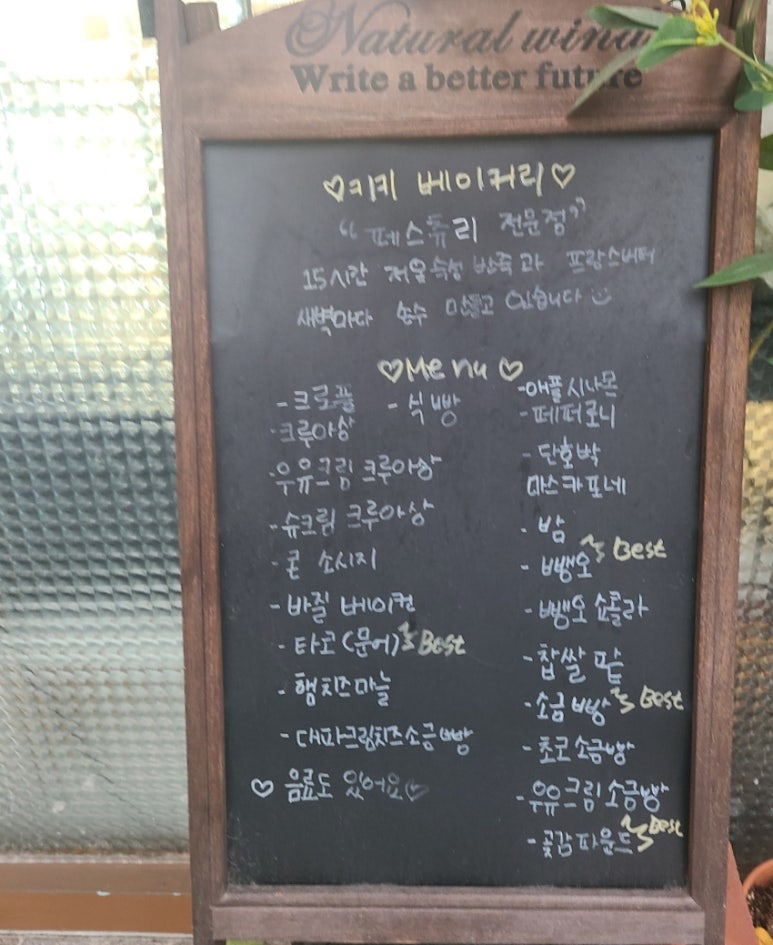 Natural wind
Write a better future
♡키키 베이커리♡
"페스츄리 전문점"
15시간 저온숙성 반죽과 프랑스버터
새벽마다 손수 만들고 있습니다
♡Menu♡
- 크로플 - 식빵
- 크루아상
- 우유크림 크루아상
- 슈크림 크루아상
- 콘 소시지
- 바질 베이컨
- 타코(문어) Best
- 햄치즈마늘
- 대파크림치즈소금빵
♡ 음료도 있어요♡
- 애플시나몬
- 페퍼로니
- 단호박
마스카포네
- 밤
- 뺑오 Best
- 뺑오 쇼콜라
- 찹쌀 팥
- 소금빵 Best
- 초코소금빵
- 우유크림소금빵
- 곶감파운드 Best